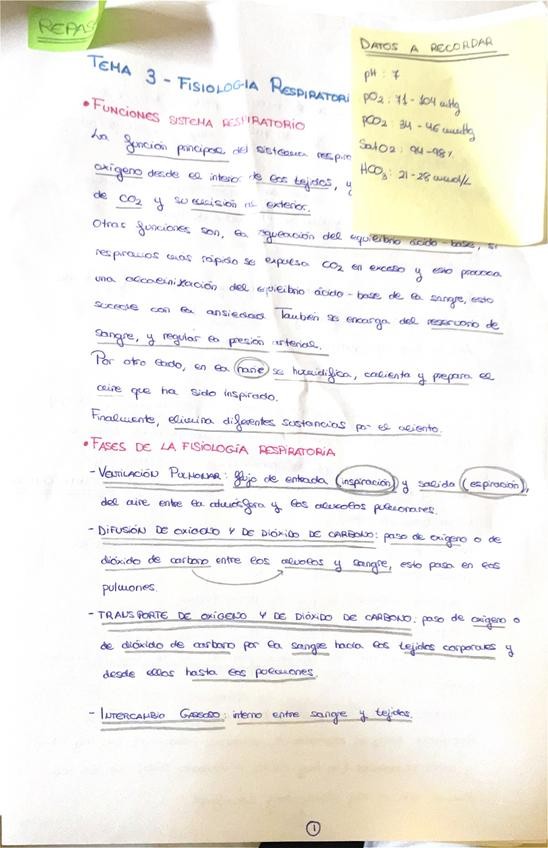 REPAS
DATOS A RECORDAR
pH: 7
pO2: 71 - 104 mmHg
pCO2: 34 - 46 mmHg
SatO2: 94-98%
HCO3: 21-28 mmol/L
TEMA 3 - FISIOLOGIA RESPIRATORI
• FUNCIONES SISTEMA RESPIRATORIO
La función principal del sistema respira
oxígeno desde el interior de los tejidos, y
de CO2 y su emisión al exterior.
Otras funciones son, la regulación del equilibrio ácido-base, si
respiramos mas rápido se expulsa CO2 en exceso y esto provoca
una alcalinización del equilibrio ácido-base de la sangre, esto
sucede con la ansiedad. Tambien se encarga del reservorio de
sangre, y regular la presión arterial.
Por otro lado, en la nariz se humidifica, calienta y prepara el
aire que ha sido inspirado.
Finalmente, elimina diferentes sustancias por el aliento.
• FASES DE LA FISIOLOGÍA RESPIRATORIA
- VENTILACIÓN PULMONAR: flujo de entrada (inspiración) y salida (espiración),
del aire entre la atmósfera y los alveolos pulmonares.
- DIFUSIÓN DE OXIGENO Y DE DIÓXIDO DE CARBONO: paso de oxígeno o de
dióxido de carbono entre los alveolos y sangre, esto pasa en los
pulmones.
- TRANSPORTE DE OXÍGENO Y DE DIÓXIDO DE CARBONO: paso de oxígeno o
de dióxido de carbono por la sangre hacia los tejidos corporales y
desde ellos hasta los pulmones.
- INTERCAMBIO GASEOSO: interno entre sangre y tejidos.
1